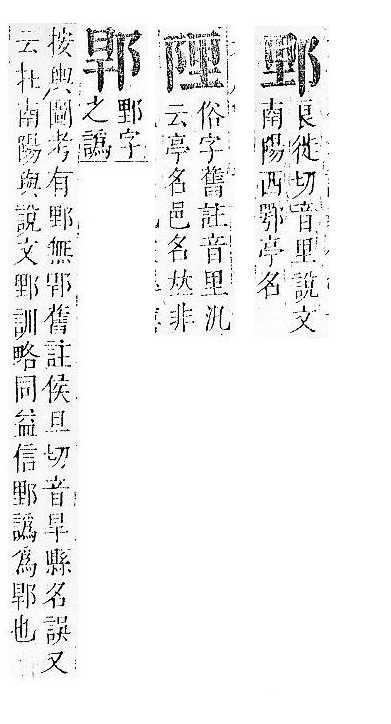 𨛋
良徙切音里說文
南陽西鄂亭名
俗字舊註音里汎
云亭名邑名𠀤非
𨛋字
之譌
按輿圖考有𨛋無舊註侯旦切音旱縣名誤又
云在南陽與說文𨛋訓略同益信𨛋譌爲也